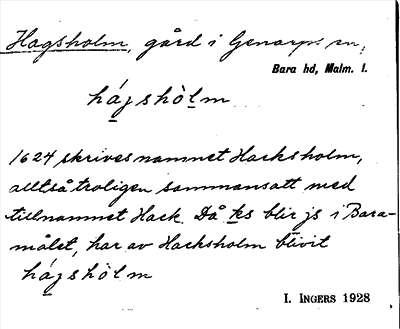 Hagsholm, gård i Genarps sn,
Bara hd, Malm. l.
hágshòlm
1624 skrives namnet Hacksholm,
alltså troligen sammansatt med
tillnamnet Hack. Då ks blir gs i Bara-
målet, har av Hacksholm blivit
hágshòlm
I. INGERS 1928